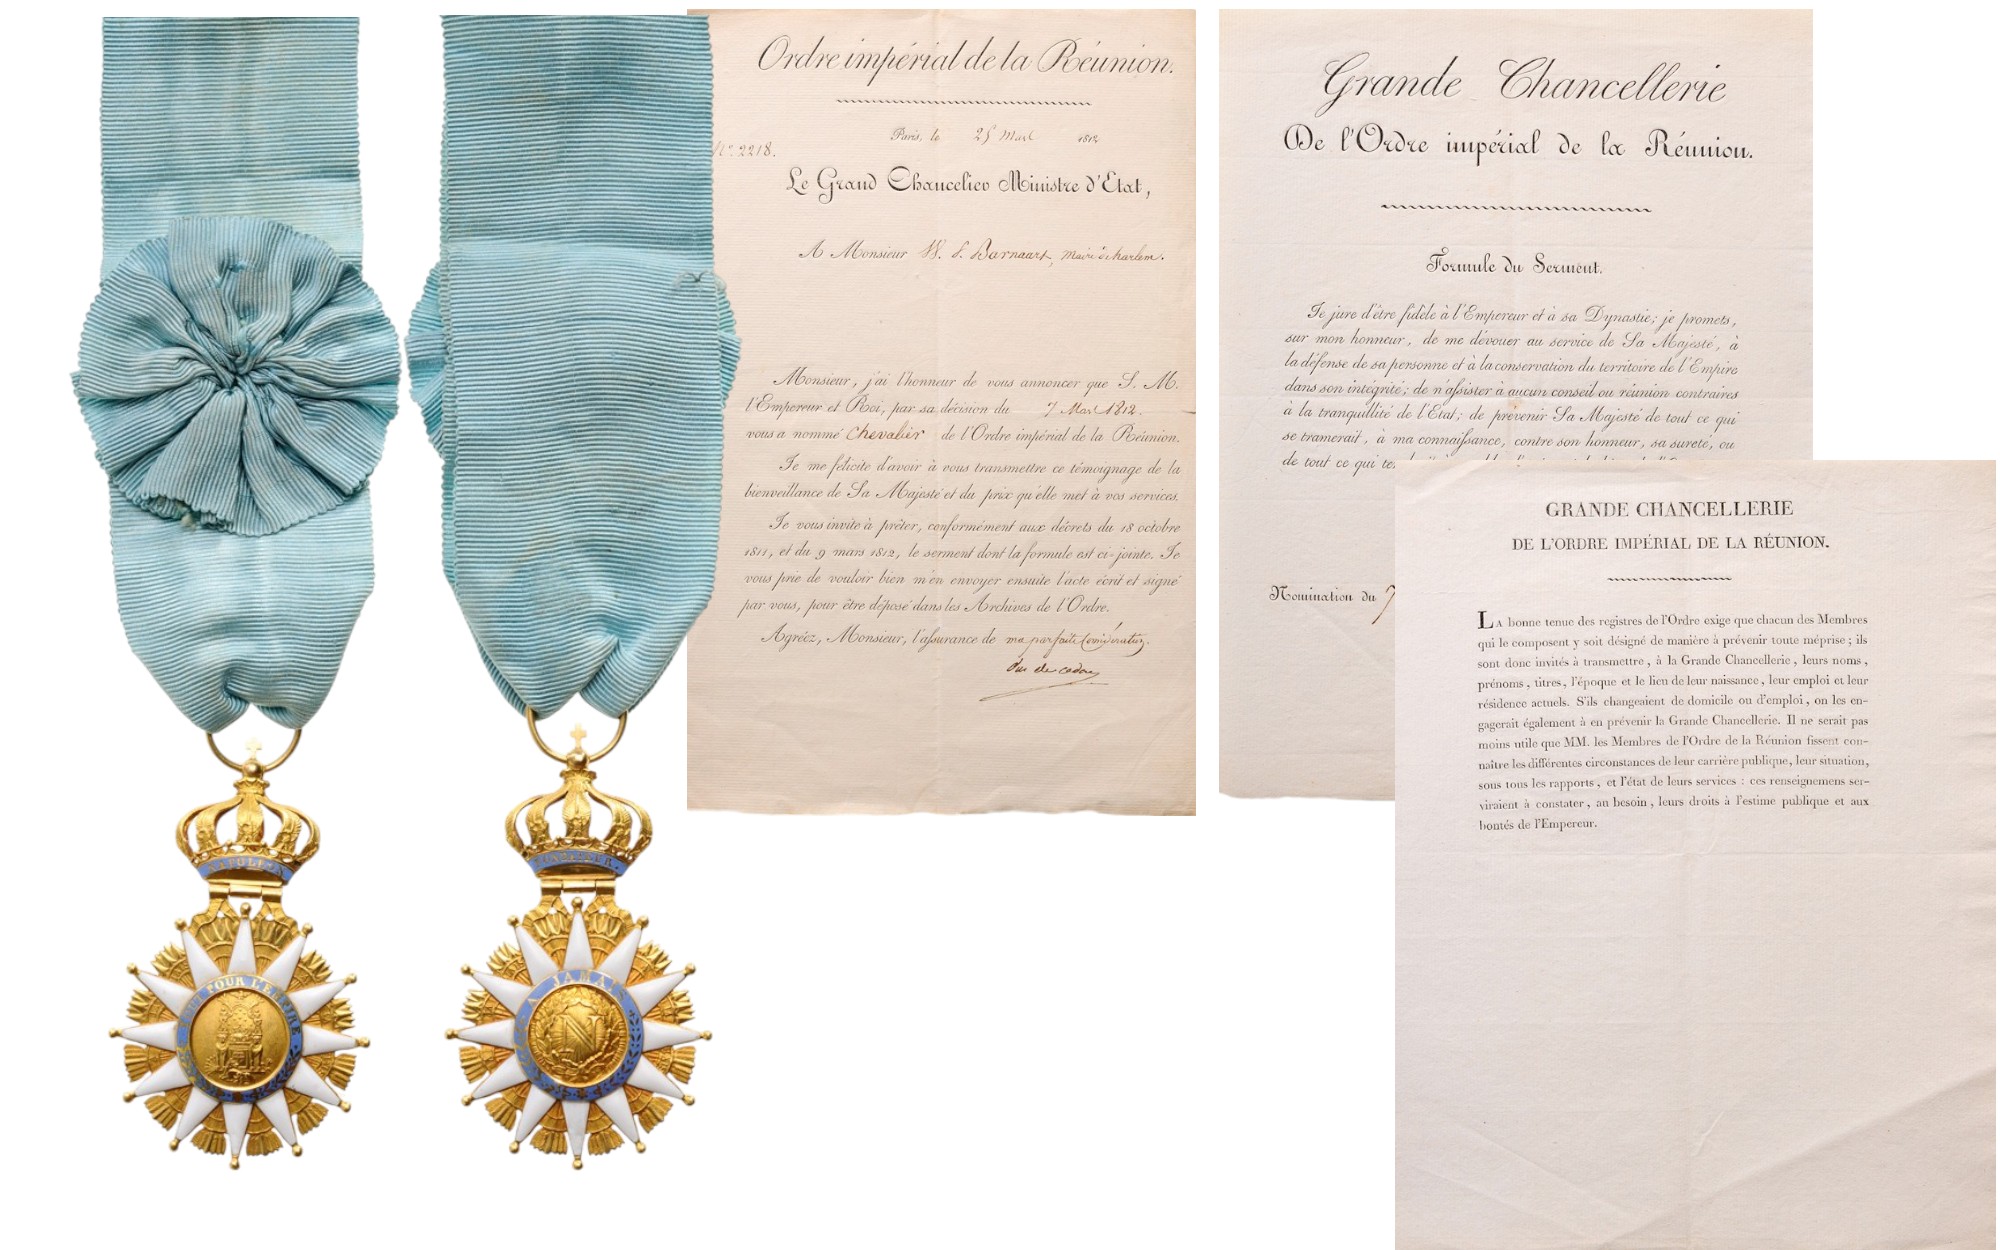 NAPOLEON
TOUT POUR L'EMPIRE
A JAMAIS
N
Ordre impérial de la Réunion.
Paris, le 25 Mars 1812
N.º 2218.
Le Grand Chancelier Ministre d'Etat,
A Monsieur W. P. Barnaart, maire d'harlem.
Monsieur, j'ai l'honneur de vous annoncer que S. M.
l'Empereur et Roi, par sa décision du 7 Mars 1812.
vous a nommé Chevalier de l'Ordre impérial de la Réunion.
Je me félicite d'avoir à vous transmettre ce témoignage de la
bienveillance de Sa Majesté et du prix qu'elle met à vos services.
Je vous invite à prêter, conformément aux décrets du 18 octobre
1811, et du 9 mars 1812, le serment dont la formule est ci-jointe. Je
vous prie de vouloir bien m'en envoyer ensuite l'acte écrit et signé
par vous, pour être déposé dans les Archives de l'Ordre.
Agréez, Monsieur, l'assurance de ma parfaite Considération.
duc de cadore
Grande Chancellerie
De l'Ordre impérial de la Réunion.
Formule du Serment.
Je jure d'être fidèle à l'Empereur et à sa Dynastie; je promets,
sur mon honneur, de me dévouer au service de Sa Majesté, à
la défense de sa personne et à la conservation du territoire de l'Empire
dans son intégrité; de n'assister à aucun conseil ou réunion contraires
à la tranquillité de l'Etat; de prévenir Sa Majesté de tout ce qui
se tramerait, à ma connaissance, contre son honneur, sa sureté, ou
de tout ce qui
Nomination du 7
GRANDE CHANCELLERIE
DE L'ORDRE IMPÉRIAL DE LA RÉUNION.
LA bonne tenue des registres de l'Ordre exige que chacun des Membres
qui le composent y soit désigné de manière à prévenir toute méprise; ils
sont donc invités à transmettre, à la Grande Chancellerie, leurs noms,
prénoms, titres, l'époque et le lieu de leur naissance, leur emploi et leur
résidence actuels. S'ils changeaient de domicile ou d'emploi, on les en-
gagerait également à en prévenir la Grande Chancellerie. Il ne serait pas
moins utile que MM. les Membres de l'Ordre de la Réunion fissent con-
naître les différentes circonstances de leur carrière publique, leur situation,
sous tous les rapports, et l'état de leurs services : ces renseignemens ser-
viraient à constater, au besoin, leurs droits à l'estime publique et aux
bontés de l'Empereur.